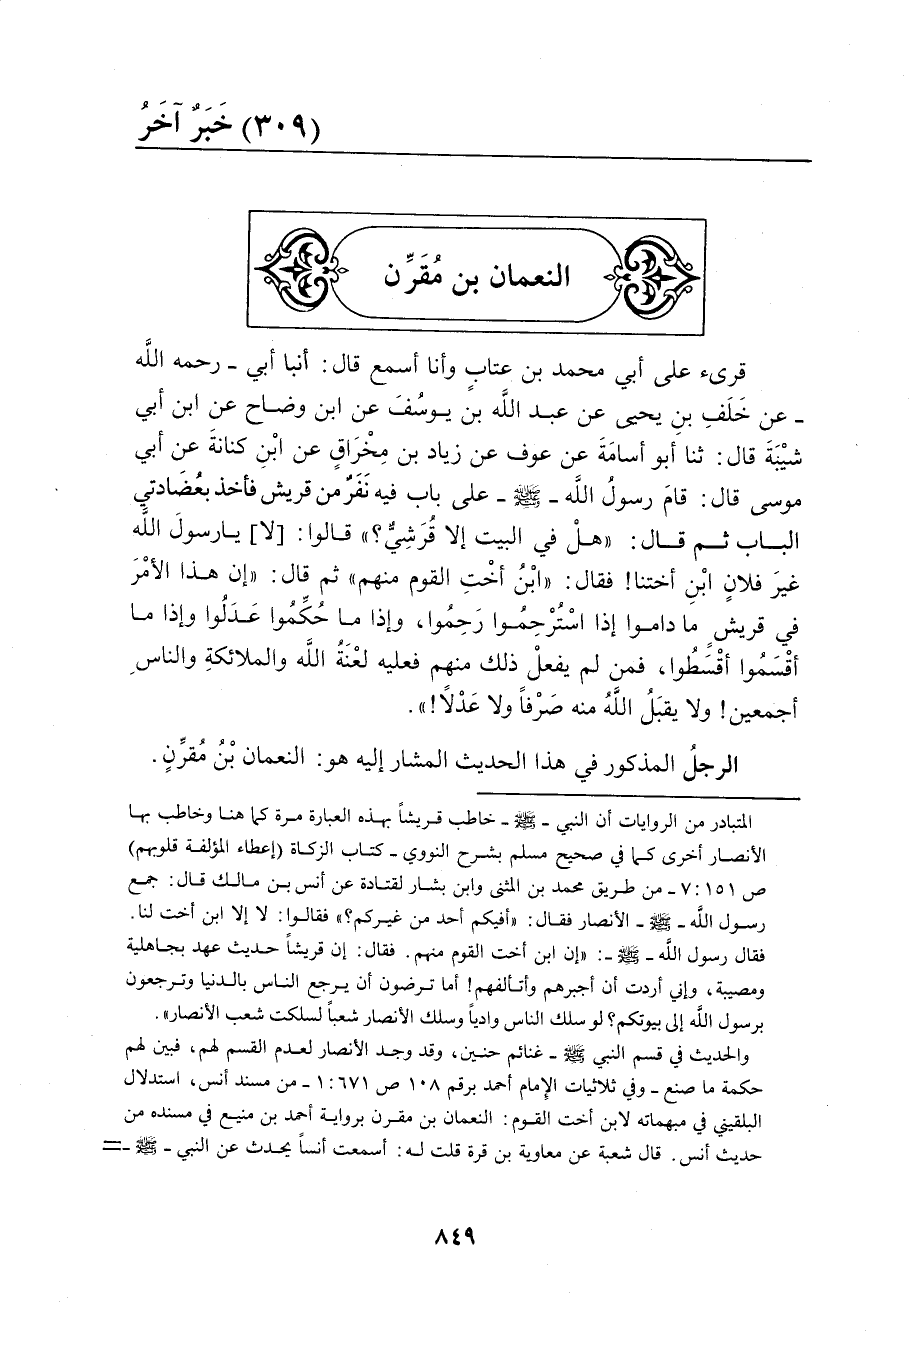 (٣٠٩) خَبَرٌ آخَرُ
النعمان بن مُقَرِّن
قرىء على أبي محمد بن عتابٍ وأنا أسمع قال: أنبا أبي ـ رحمه اللَّه
ـ عن خَلَفِ بنِ يحيى عن عبد اللَّه بن يوسُفَ عن ابن وضاح عن ابن أبي
شيْبَةَ قال: ثنا أبو أسامَةَ عن عوف عن زياد بن مِخْراقٍ عن ابْنِ كنانةَ عن أبي
موسى قال: قامَ رسولُ اللَّه ـ ﷺ ـ على باب فيه نَفَرٌ من قريش فأخذ بعُضَادتي
الباب ثم قال: «هلْ في البيت إلا قُرَشِيٌّ؟» قالوا: [لا] يارسولَ اللَّه
غيرَ فلانٍ ابْنِ أختنا! فقال: «ابْنُ أخْتِ القوم منهم» ثم قال: «إن هذا الأمْرَ
في قريشٍ ما داموا إذا اسْتُرْحِمُوا رَحِمُوا، وإذا ما حُكِّمُوا عَدَلُوا وإذا ما
أقْسَمُوا أقْسَطُوا، فمن لم يفعلْ ذلك منهم فعليه لعْنَةُ اللَّه والملائكةِ والناسِ
أجمعين! ولا يقبَلُ اللَّهُ منه صَرْفاً ولا عَدْلاً!».
الرجلُ المذكور في هذا الحديث المشار إليه هو: النعمان بْنُ مُقرِّنٍ.
المتبادر من الروايات أن النبي ـ ﷺ ـ خاطب قريشاً بهذه العبارة مرة كما هنا وخاطب بها
الأنصار أخرى كما في صحيح مسلم بشرح النووي ـ كتاب الزكاة (إعطاء المؤلفة قلوبهم)
ص ١٥١: ٧ ـ من طريق محمد بن المثنى وابن بشار لقتادة عن أنس بن مالك قال: جمع
رسول اللَّه ـ ﷺ ـ الأنصار فقال: «أفيكم أحد من غيركم؟» فقالوا: لا إلا ابن أخت لنا.
فقال رسول اللَّه ـ ﷺ ـ: «إن ابن أخت القوم منهم. فقال: إن قريشاً حديث عهد بجاهلية
ومصيبة، وإني أردت أن أجبرهم وأتألفهم! أما ترضون أن يرجع الناس بالدنيا وترجعون
برسول اللَّه إلى بيوتكم؟ لو سلك الناس وادياً وسلك الأنصار شعباً لسلكت شعب الأنصار».
والحديث في قسم النبي ﷺ ـ غنائم حنين، وقد وجد الأنصار لعدم القسم لهم، فبين لهم
حكمة ما صنع ـ وفي ثلاثيات الإمام أحمد برقم ١٠٨ ص ٦٧١: ١ ـ من مسند أنس، استدلال
البلقيني في مبهماته لابن أخت القوم: النعمان بن مقرن برواية أحمد بن منيع في مسنده من
حديث أنس. قال شعبة عن معاوية بن قرة قلت له: أسمعت أنساً يحدث عن النبي ـ ﷺ ـ=
٨٤٩